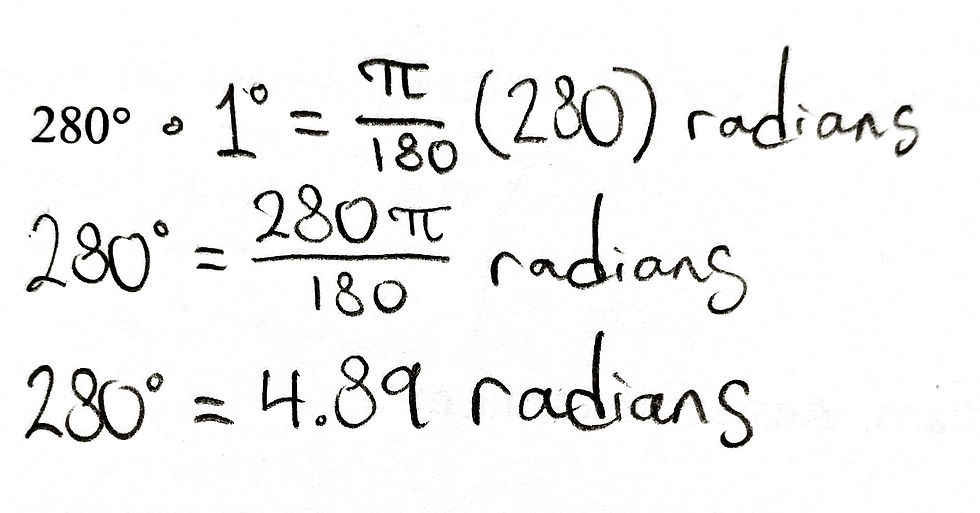 280° • 1° = π/180 (280) radians
280° = 280π/180 radians
280° = 4.89 radians